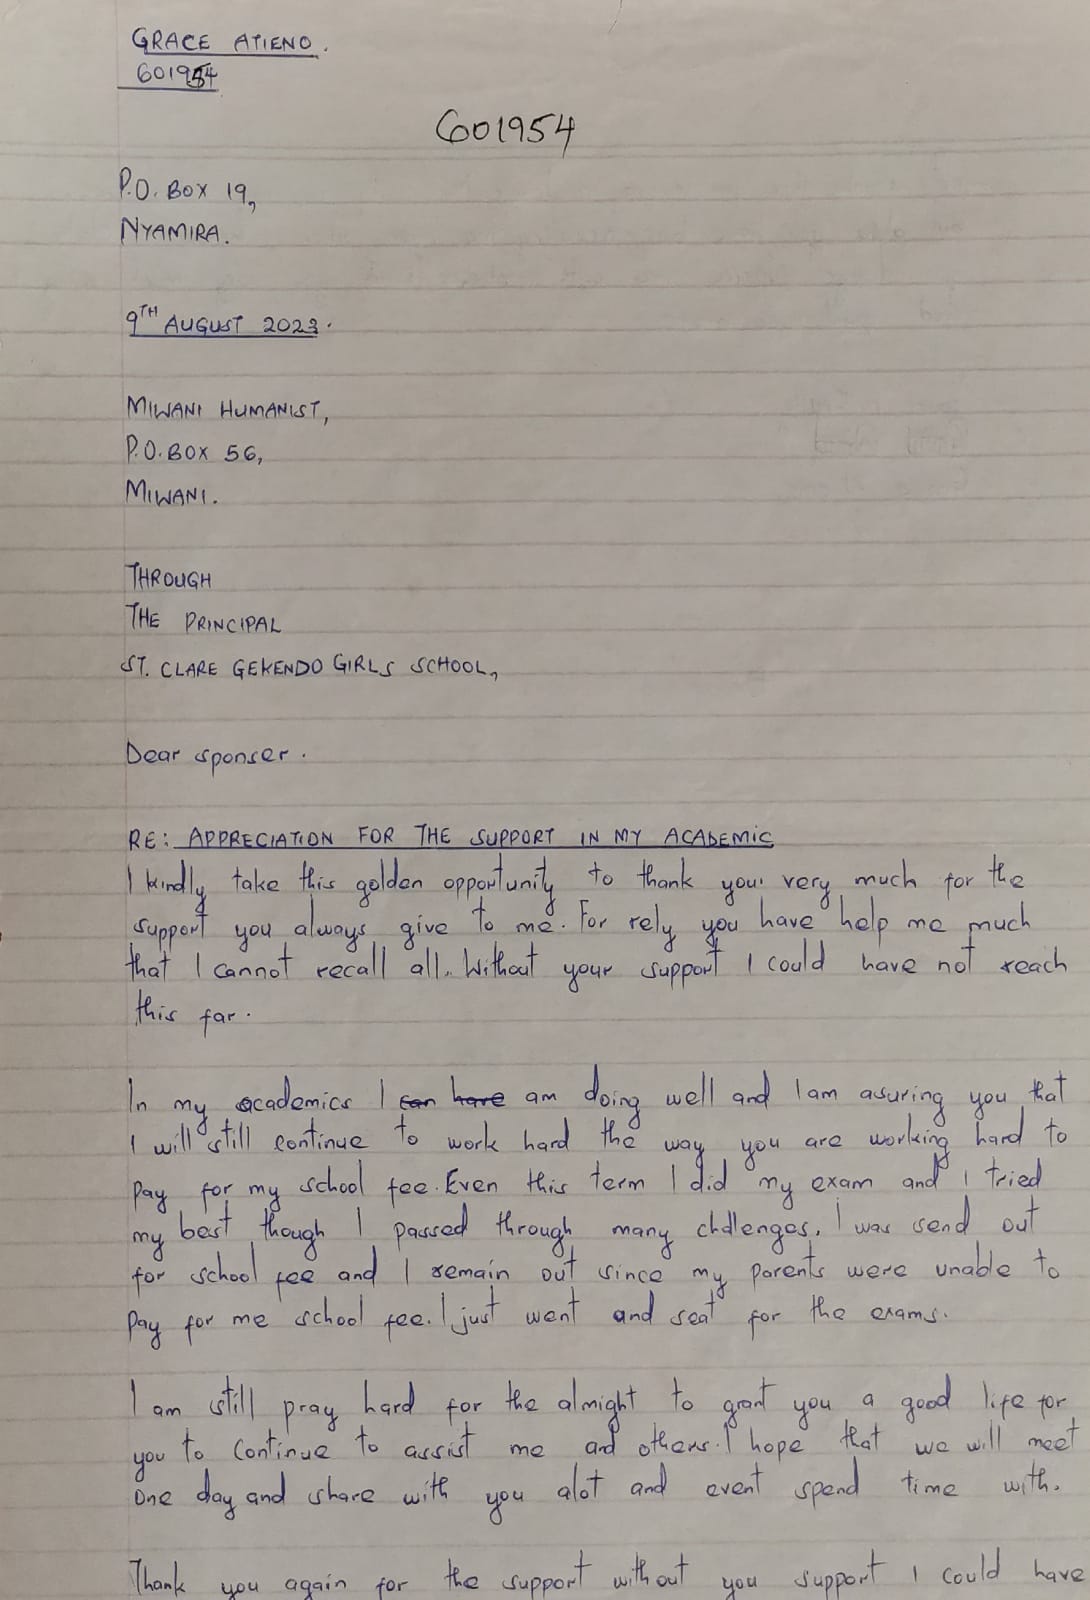 GRACE ATIENO.
601954
601954
P.O. BOX 19,
NYAMIRA.
9TH AUGUST 2023.
MIWANI HUMANIST,
P.O. BOX 56,
MIWANI.
THROUGH
THE PRINCIPAL
ST. CLARE GEKENDO GIRLS SCHOOL,
Dear sponser.
RE: APPRECIATION FOR THE SUPPORT IN MY ACADEMIC
I kindly take this golden opportunity to thank you very much for the
support you always give to me. For rely you have help me much
that I cannot recall all. Without your support I could have not reach
this far.
In my academics I can have am doing well and I am asuring you that
I will still continue to work hard the way you are working hard to
pay for my school fee. Even this term I did my exam and I tried
my best though I passed through many challenges. I was send out
for school fee and I remain out since my parents were unable to
pay for me school fee. I just went and seat for the exams.
I am still pray hard for the almight to grant you a good life for
you to continue to assist me and others. I hope that we will meet
one day and share with you alot and event spend time with.
Thank you again for the support without you support I could have